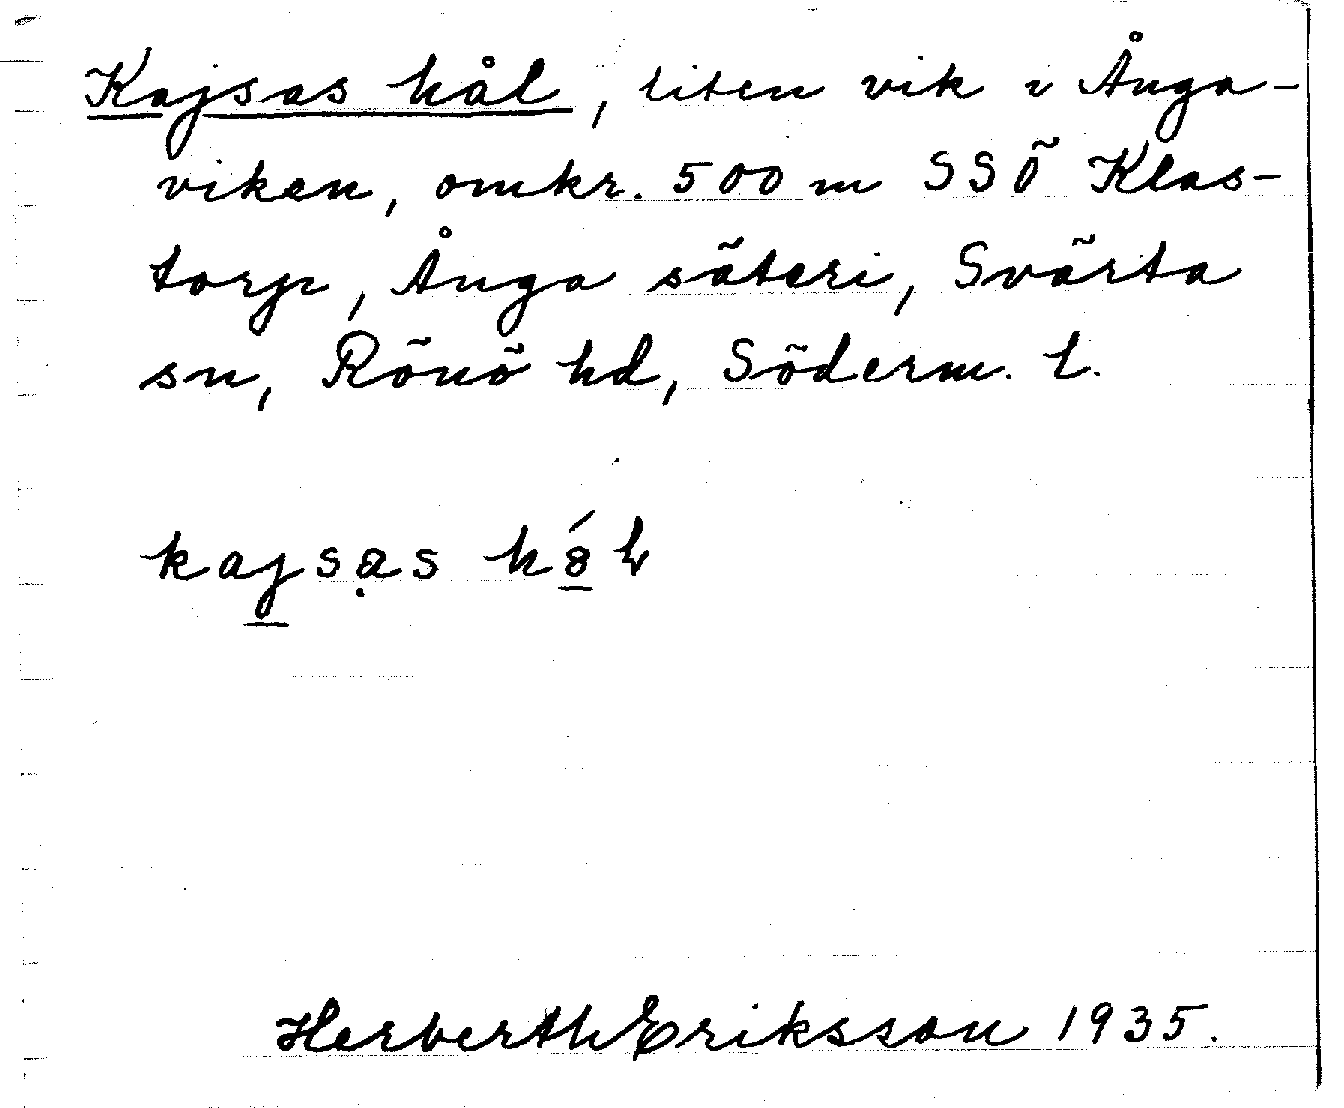 Kajsas hål, liten vik i Ånga-
viken, omkr. 500 m SSÖ Klas-
torp, Ånga säteri, Svärta
sn, Rönö hd, Söderm. l.
kajsas
Herberth Eriksson 1935.